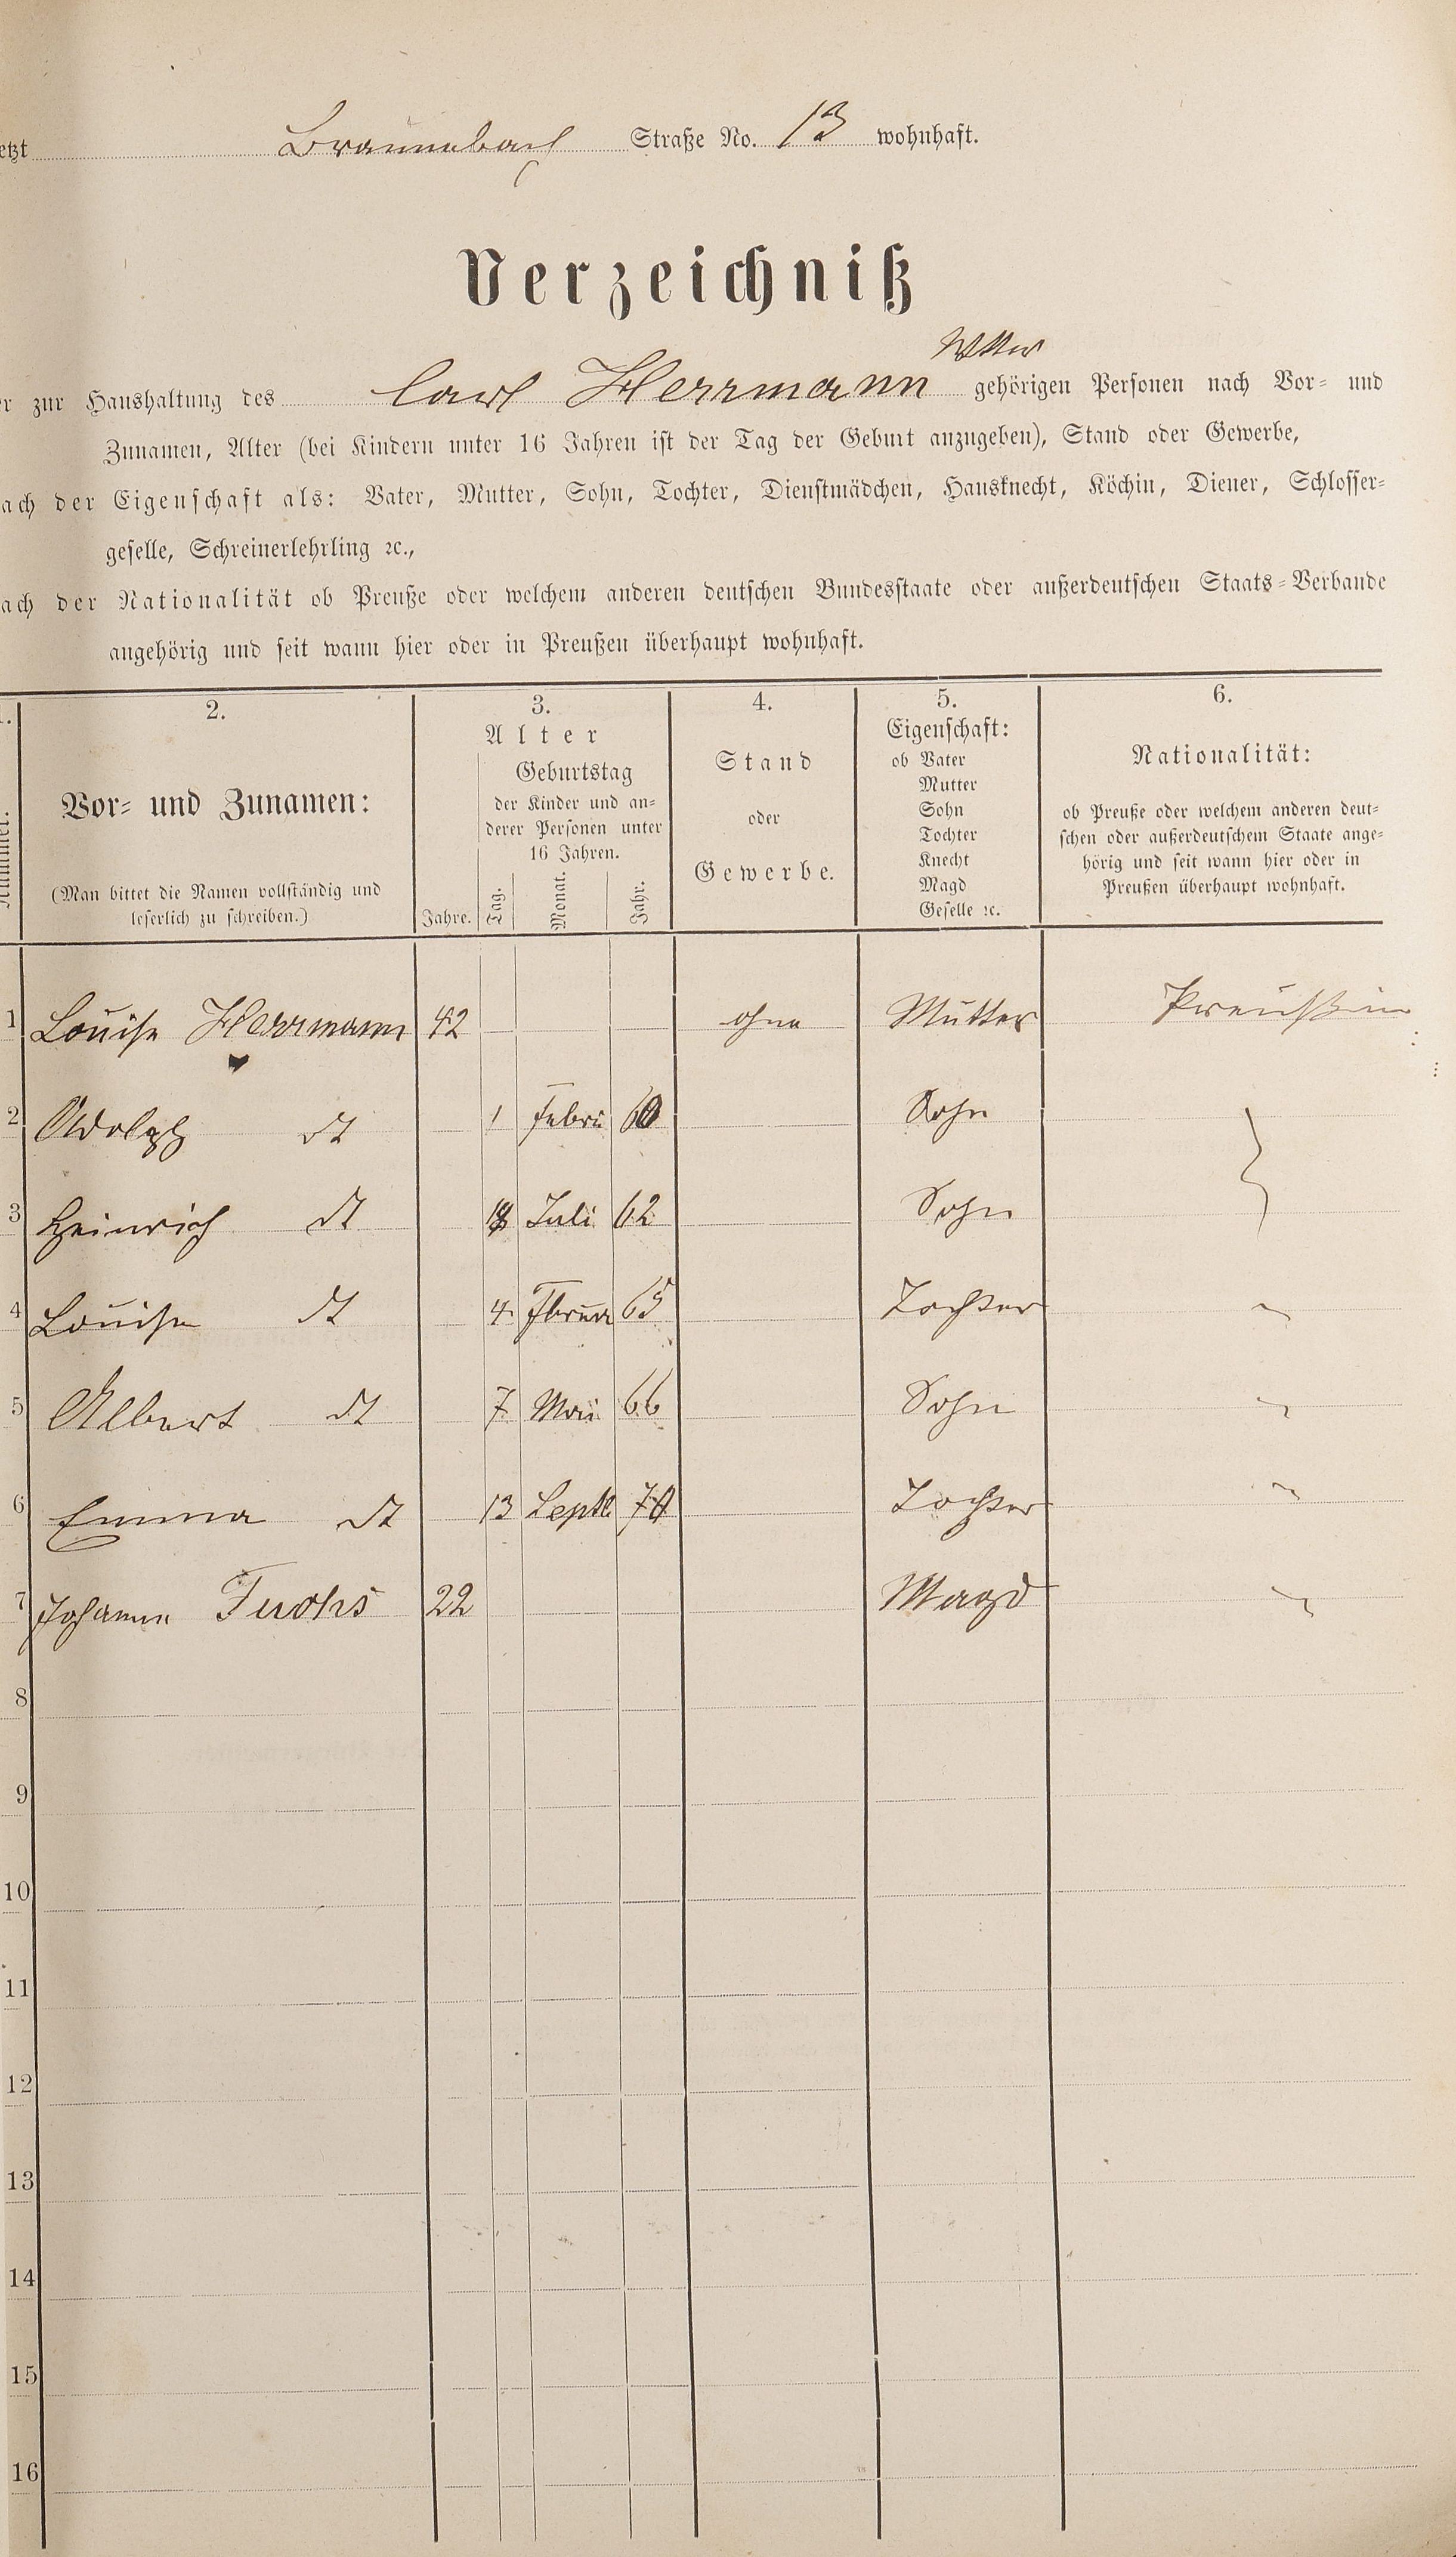 etzt Braunebach Straße No. 13 wohnhaft.
Verzeichniß
Wttw
r zur Haushaltung des Carl Herrmann gehörigen Personen nach Vor- und
Zunamen, Alter (bei Kindern unter 16 Jahren ist der Tag der Geburt anzugeben), Stand oder Gewerbe,
ach der Eigenschaft als: Vater, Mutter, Sohn, Tochter, Dienstmädchen, Hausknecht, Köchin, Diener, Schlosser-
geselle, Schreinerlehrling ꝛc.,
ach der Nationalität ob Preuße oder welchem anderen deutschen Bundesstaate oder außerdeutschen Staats-Verbande
angehörig und seit wann hier oder in Preußen überhaupt wohnhaft.
Nummer.
2.
Vor- und Zunamen:
(Man bittet die Namen vollständig und
leserlich zu schreiben.)
3.
Alter
Geburtstag
der Kinder und an-
derer Personen unter
16 Jahren.
Jahre. Tag. Monat. Jahr.
4.
Stand
oder
Gewerbe.
5.
Eigenschaft:
ob Vater
Mutter
Sohn
Tochter
Knecht
Magd
Geselle ꝛc.
6.
Nationalität:
ob Preuße oder welchem anderen deut-
schen oder außerdeutschem Staate ange-
hörig und seit wann hier oder in
Preußen überhaupt wohnhaft.
1 Louise Herrmann 42 ohne Mutter Preußin
2 Adolph dt 1 Febru 60 Sohn
3 Heinrich dt Juli 62 Sohn
4 Louise dt 4 Fbrua 65 Tochter "
5 Albert dt 7 Mai 66 Sohn "
6 Emma dt 13 Septb 70 Tochter "
7 Johanna Fuchs 22 Magd "
8
9
10
11
12
13
14
15
16